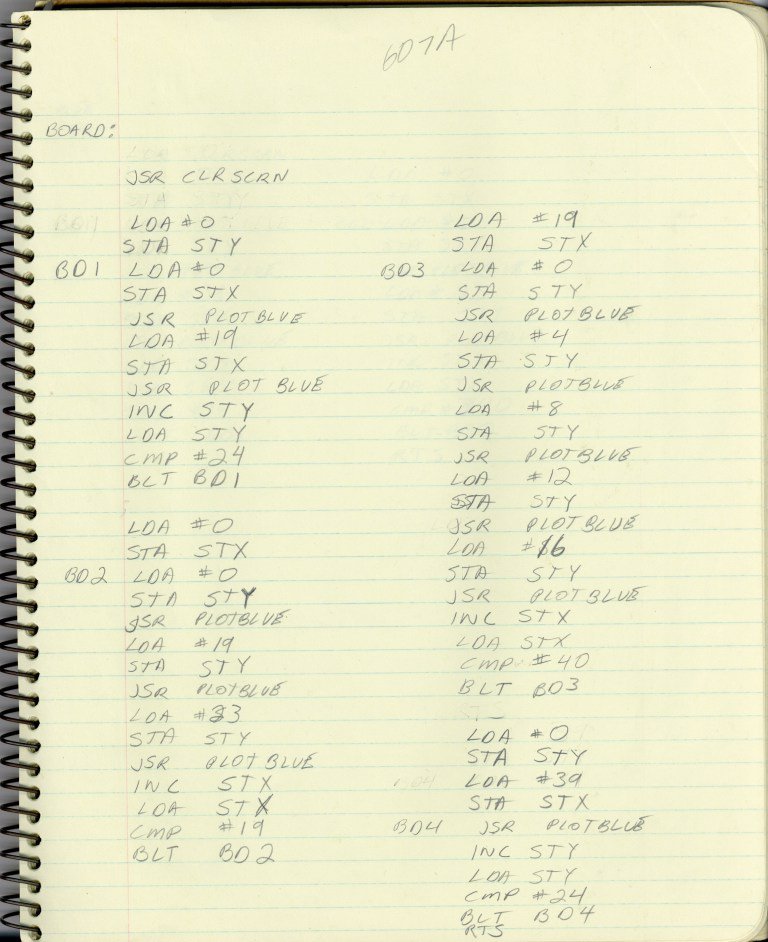 607A
BOARD:
JSR CLRSCRN
LDA #0
STA STY
BD1 LDA #0
STA STX
JSR PLOTBLUE
LDA #19
STA STX
JSR PLOTBLUE
INC STY
LDA STY
CMP #24
BLT BD1
LDA #0
STA STX
BD2 LDA #0
STA STY
JSR PLOTBLUE
LDA #19
STA STY
JSR PLOTBLUE
LDA #23
STA STY
JSR PLOTBLUE
INC STX
LDA STX
CMP #19
BLT BD2
LDA #19
STA STX
BD3 LDA #0
STA STY
JSR PLOTBLUE
LDA #4
STA STY
JSR PLOTBLUE
LDA #8
STA STY
JSR PLOTBLUE
LDA #12
STA STY
JSR PLOTBLUE
LDA #16
STA STY
JSR PLOTBLUE
INC STX
LDA STX
CMP #40
BLT BD3
LDA #0
STA STY
LDA #39
STA STX
BD4 JSR PLOTBLUE
INC STY
LDA STY
CMP #24
BLT BD4
RTS